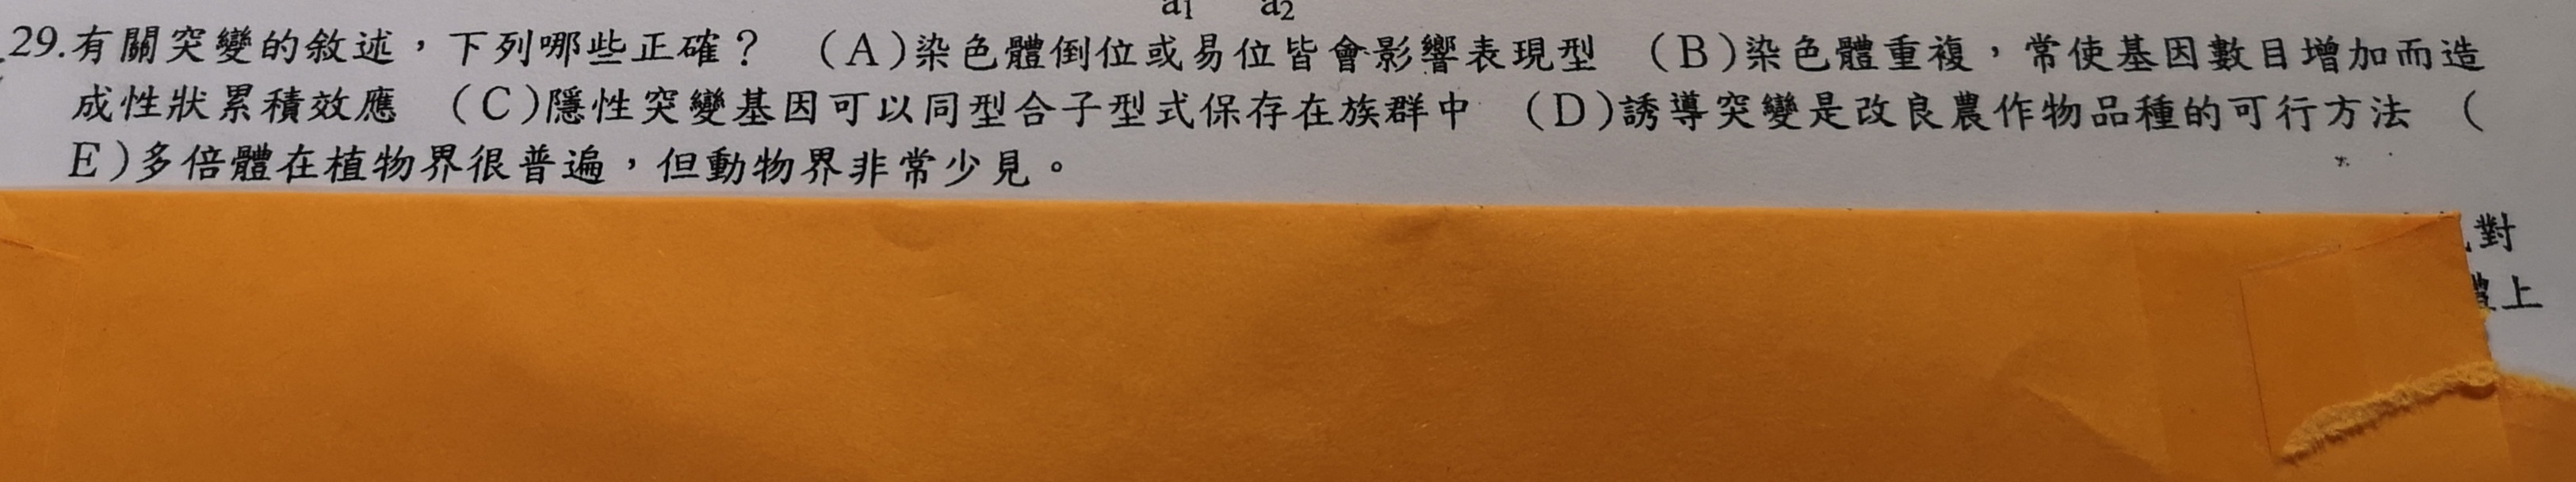 a1 a2
29.有關突變的敘述，下列哪些正確？ （A）染色體倒位或易位皆會影響表現型 （B）染色體重複，常使基因數目增加而造
成性狀累積效應 （C）隱性突變基因可以同型合子型式保存在族群中 （D）誘導突變是改良農作物品種的可行方法 （
E）多倍體在植物界很普遍，但動物界非常少見。
對
上